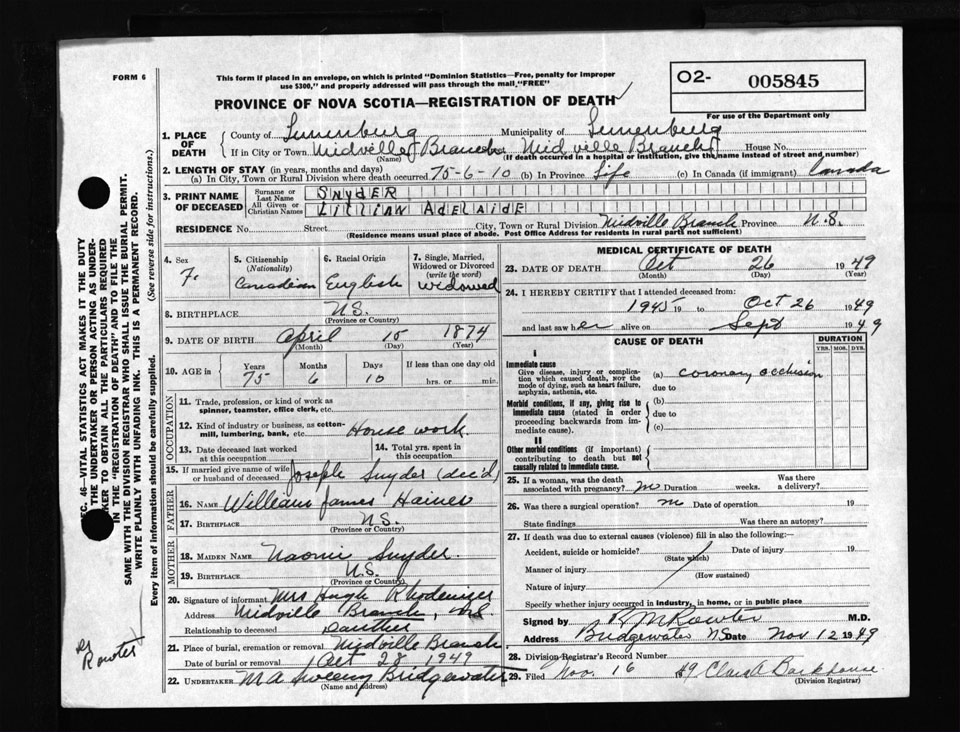 FORM 6
This form if placed in an envelope, on which is printed "Dominion Statistics—Free, penalty for improper
use $300," and properly addressed will pass through the mail, "FREE"
O2- 005845
PROVINCE OF NOVA SCOTIA—REGISTRATION OF DEATH
For use of the Department only
1. PLACE OF DEATH
County of Lunenburg Municipality of Lunenburg
If in City or Town Midville Branch Midville Branch House No.
(Name) (If death occurred in a hospital or institution, give the name instead of street and number)
2. LENGTH OF STAY (in years, months and days)
(a) In City, Town or Rural Division where death occurred 75-6-10 (b) In Province Life (c) In Canada (if immigrant) Canada
3. PRINT NAME OF DECEASED
Surname or Last Name SNYDER
All Given or Christian Names LILLIAN ADELAIDE
RESIDENCE No. Street City, Town or Rural Division Midville Branch Province N.S.
(Residence means usual place of abode. Post Office Address for residents in rural parts not sufficient)
4. Sex F.
5. Citizenship (Nationality) Canadian
6. Racial Origin English
7. Single, Married, Widowed or Divorced (write the word) widowed
8. BIRTHPLACE N.S.
(Province or Country)
9. DATE OF BIRTH April 15 1874
(Month) (Day) (Year)
10. AGE in Years 75 Months 6 Days 10 If less than one day old hrs. or min.
OCCUPATION
11. Trade, profession, or kind of work as spinner, teamster, office clerk, etc.
12. Kind of industry or business, as cotton-mill, lumbering, bank, etc. House work
13. Date deceased last worked at this occupation
14. Total yrs. spent in this occupation
15. If married give name of wife or husband of deceased Joseph Snyder (dec'd)
FATHER
16. NAME William James Haines
17. BIRTHPLACE N.S.
(Province or Country)
MOTHER
18. MAIDEN NAME Naomi Snyder
19. BIRTHPLACE N.S.
(Province or Country)
20. Signature of informant Mrs Hugh Rhodenizer
Address Midville Branch, N.S.
Relationship to deceased Daughter
21. Place of burial, cremation or removal Midville Branch
Date of burial or removal Oct 28 1949
22. UNDERTAKER M A Sweeny Bridgewater
(Name and address)
MEDICAL CERTIFICATE OF DEATH
23. DATE OF DEATH Oct 26 1949
(Month) (Day) (Year)
24. I HEREBY CERTIFY that I attended deceased from:
1945 19 to Oct 26 1949
and last saw her alive on Sept 1949
CAUSE OF DEATH
DURATION
YRS. MOS. DYS.
I
Immediate cause
Give disease, injury or complication which caused death, NOT the mode of dying, such as heart failure, asphyxia, asthenia, etc.
(a) coronary occlusion
due to
Morbid conditions, if any, giving rise to immediate cause (stated in order proceeding backwards from immediate cause).
(b)
due to
(c)
II
Other morbid conditions (if important) contributing to death but not causally related to immediate cause.
25. If a woman, was the death associated with pregnancy? Duration weeks. Was there a delivery?
26. Was there a surgical operation? Date of operation 19
State findings Was there an autopsy?
27. If death was due to external causes (violence) fill in also the following:—
Accident, suicide or homicide? Date of injury 19
(State which)
Manner of injury
(How sustained)
Nature of injury
Specify whether injury occurred in industry, in home, or in public place
Signed by M.D.
Address Bridgewater NS Date Nov 12 1949
28. Division Registrar's Record Number
29. Filed Nov. 16 49 Clara Backhouse
(Division Registrar)
SEC. 46—VITAL STATISTICS ACT MAKES IT THE DUTY
OF THE UNDERTAKER OR PERSON ACTING AS UNDER-
TAKER TO OBTAIN ALL THE PARTICULARS REQUIRED
IN THE "REGISTRATION OF DEATH" AND TO FILE THE
SAME WITH THE DIVISION REGISTRAR WHO SHALL ISSUE THE BURIAL PERMIT.
WRITE PLAINLY WITH UNFADING INK. THIS IS A PERMANENT RECORD.
Every item of information should be carefully supplied. (See reverse side for instructions.)